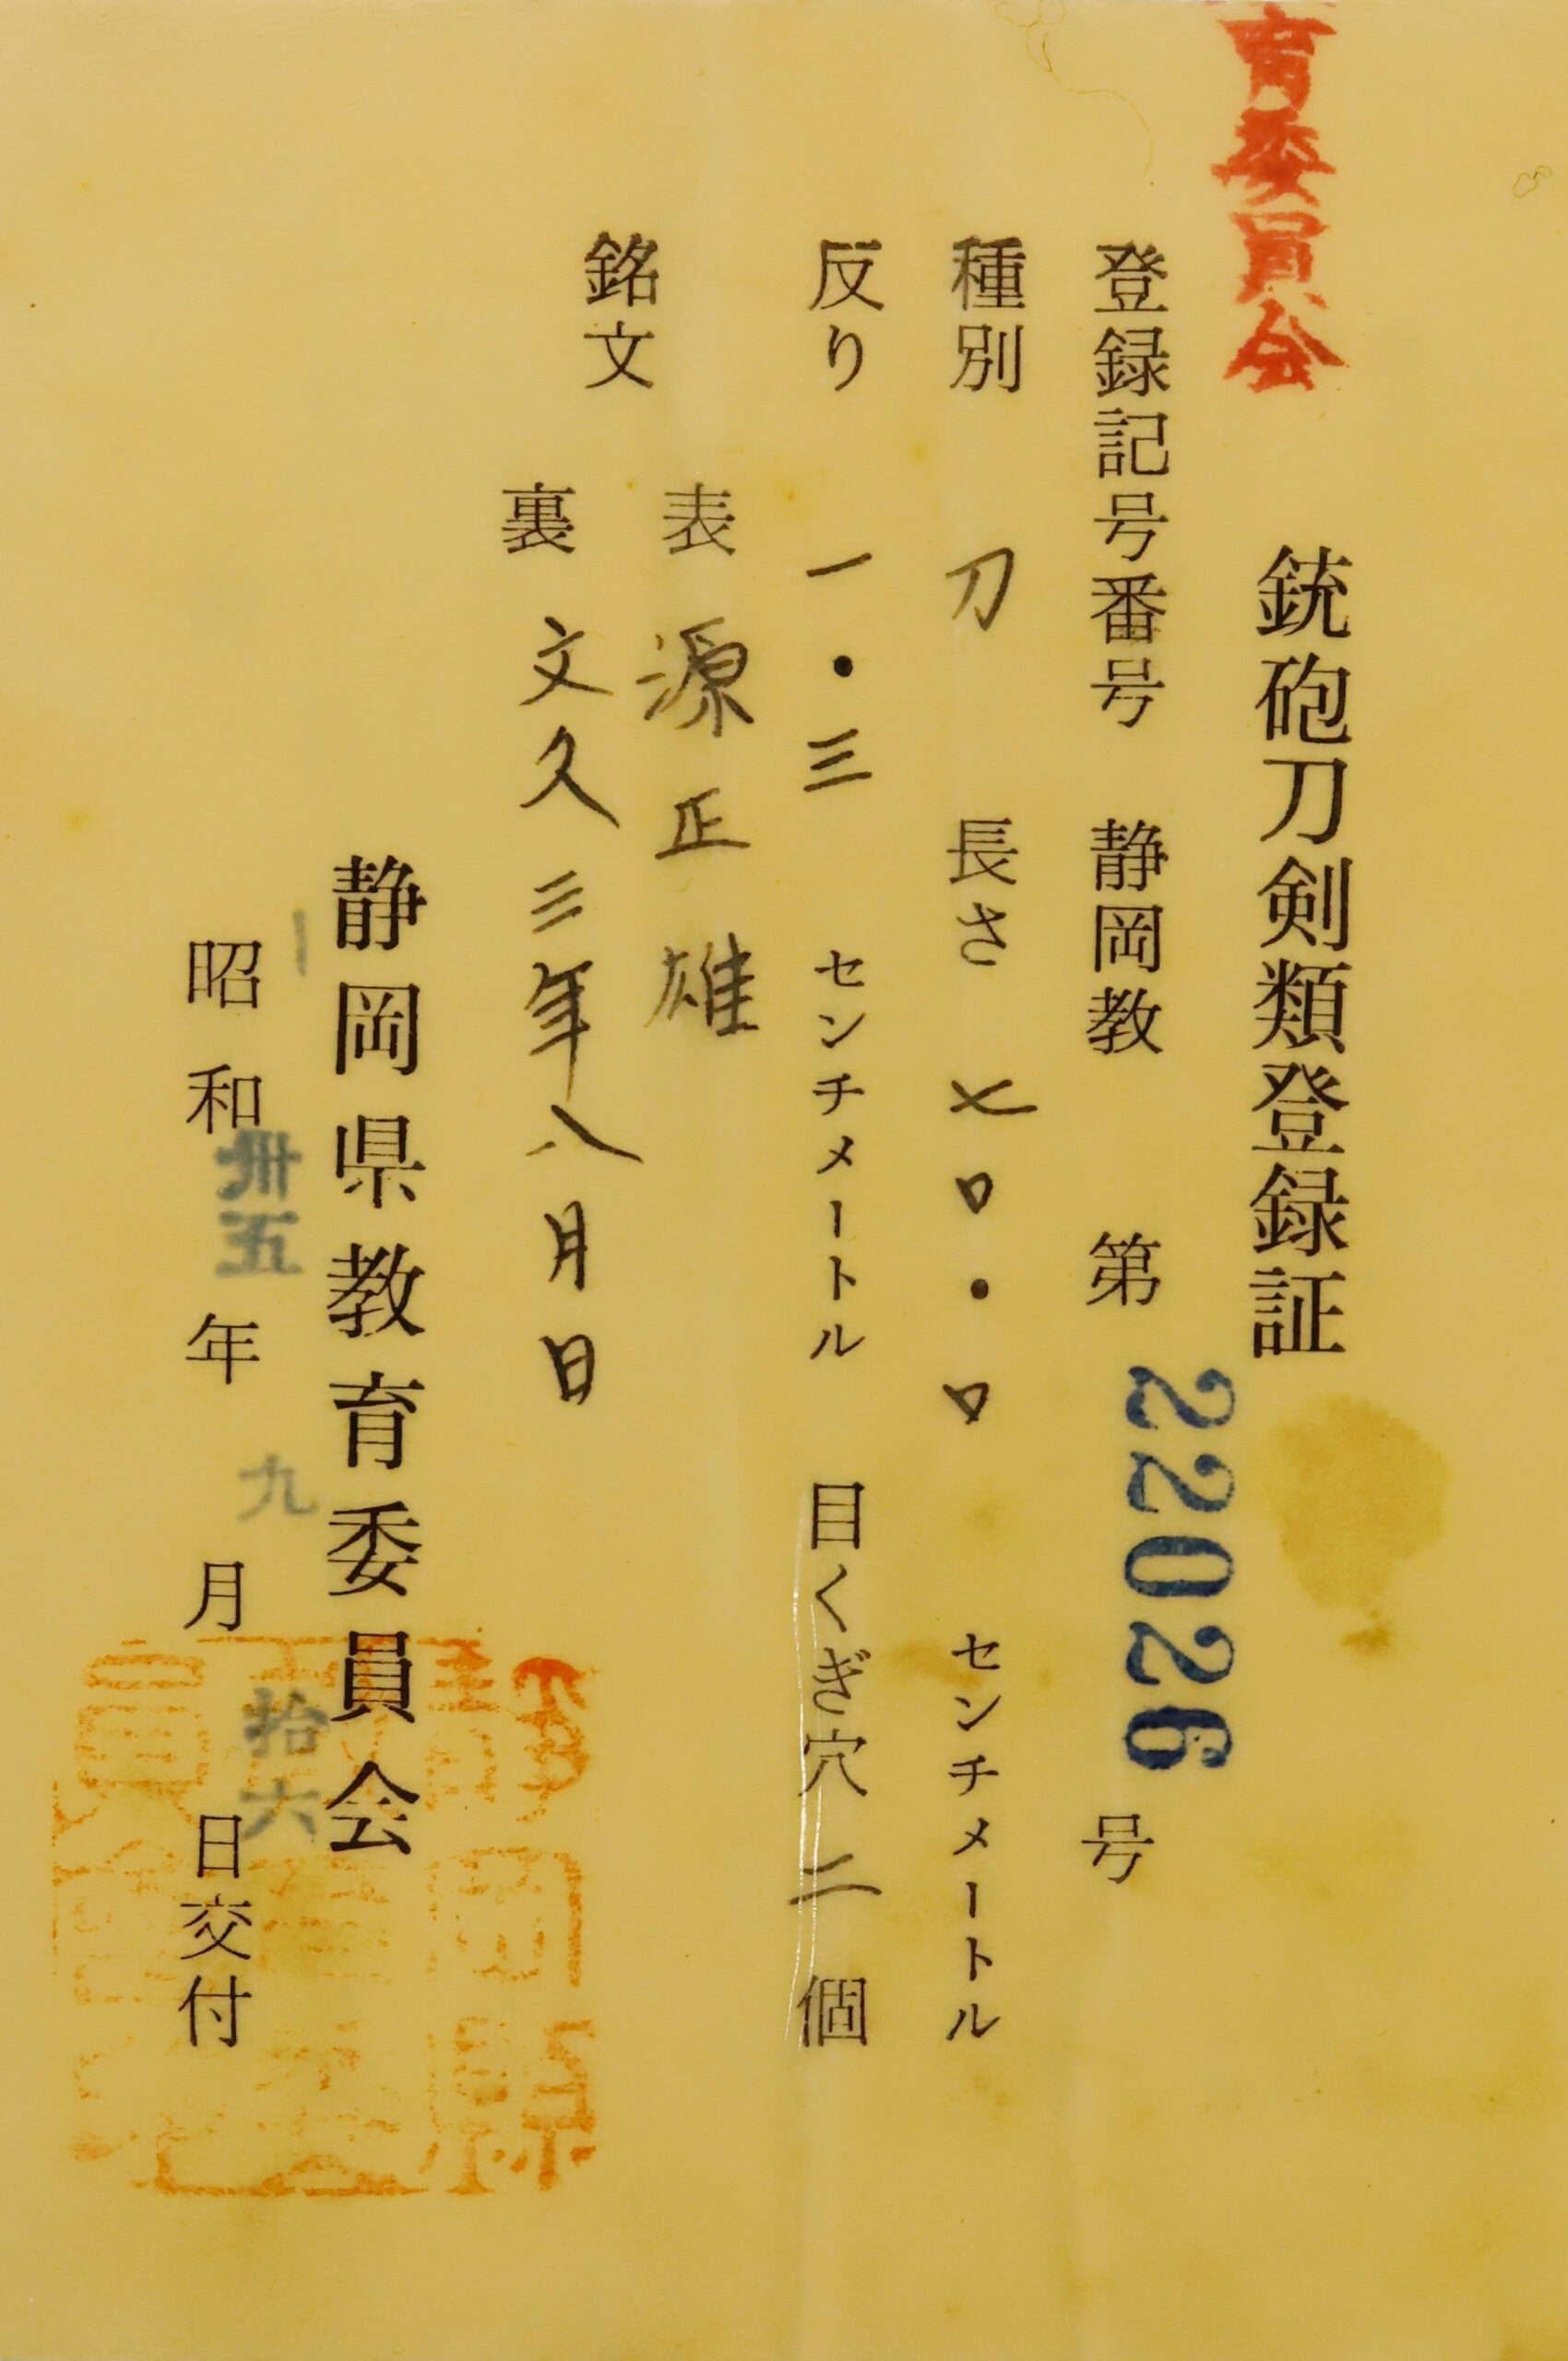 育委員会
銃砲刀剣類登録証
登録記号番号 静岡教 第 22026 号
種別 刀 長さ 七〇・〇 センチメートル
反り 一・三 センチメートル 目くぎ穴 二 個
銘文
表 源正雄
裏 文久三年八月日
静岡県教育委員会
昭和卅五年九月拾六日交付